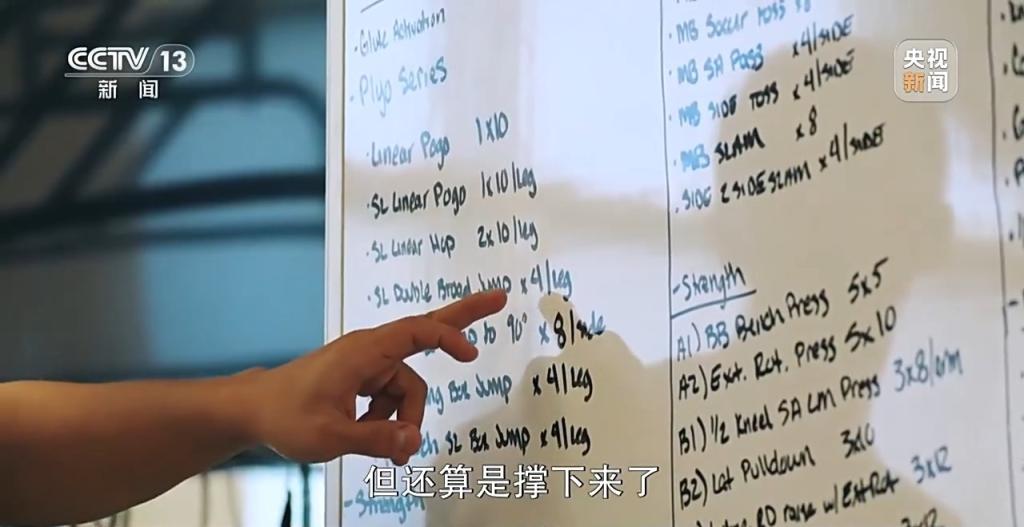 CCTV 13
新闻
央视
新闻
· Glute Activation
· Plyo Series
· Linear Pogo 1x10
· SL Linear Pogo 1x10/leg
· SL Linear Hop 2x10/leg
· SL Double Broad Jump x4/leg
to 90° x8/side
Box Jump x4/leg
SL Box Jump x4/leg
- Strength
· MB SA Pass x4/SIDE
· MB SIDE TOSS x4/SIDE
· MB SLAM x8
· SIDE 2 SIDE SLAM x4/SIDE
- Strength
A1) BB Bench Press 5x5
A2) Ext. Rot. Press 5x10
B1) 1/2 Kneel SA LM Press 3x8/arm
B2) Lat Pulldown 3x10
w/ Ext Rot 3x12
但还算是撑下来了